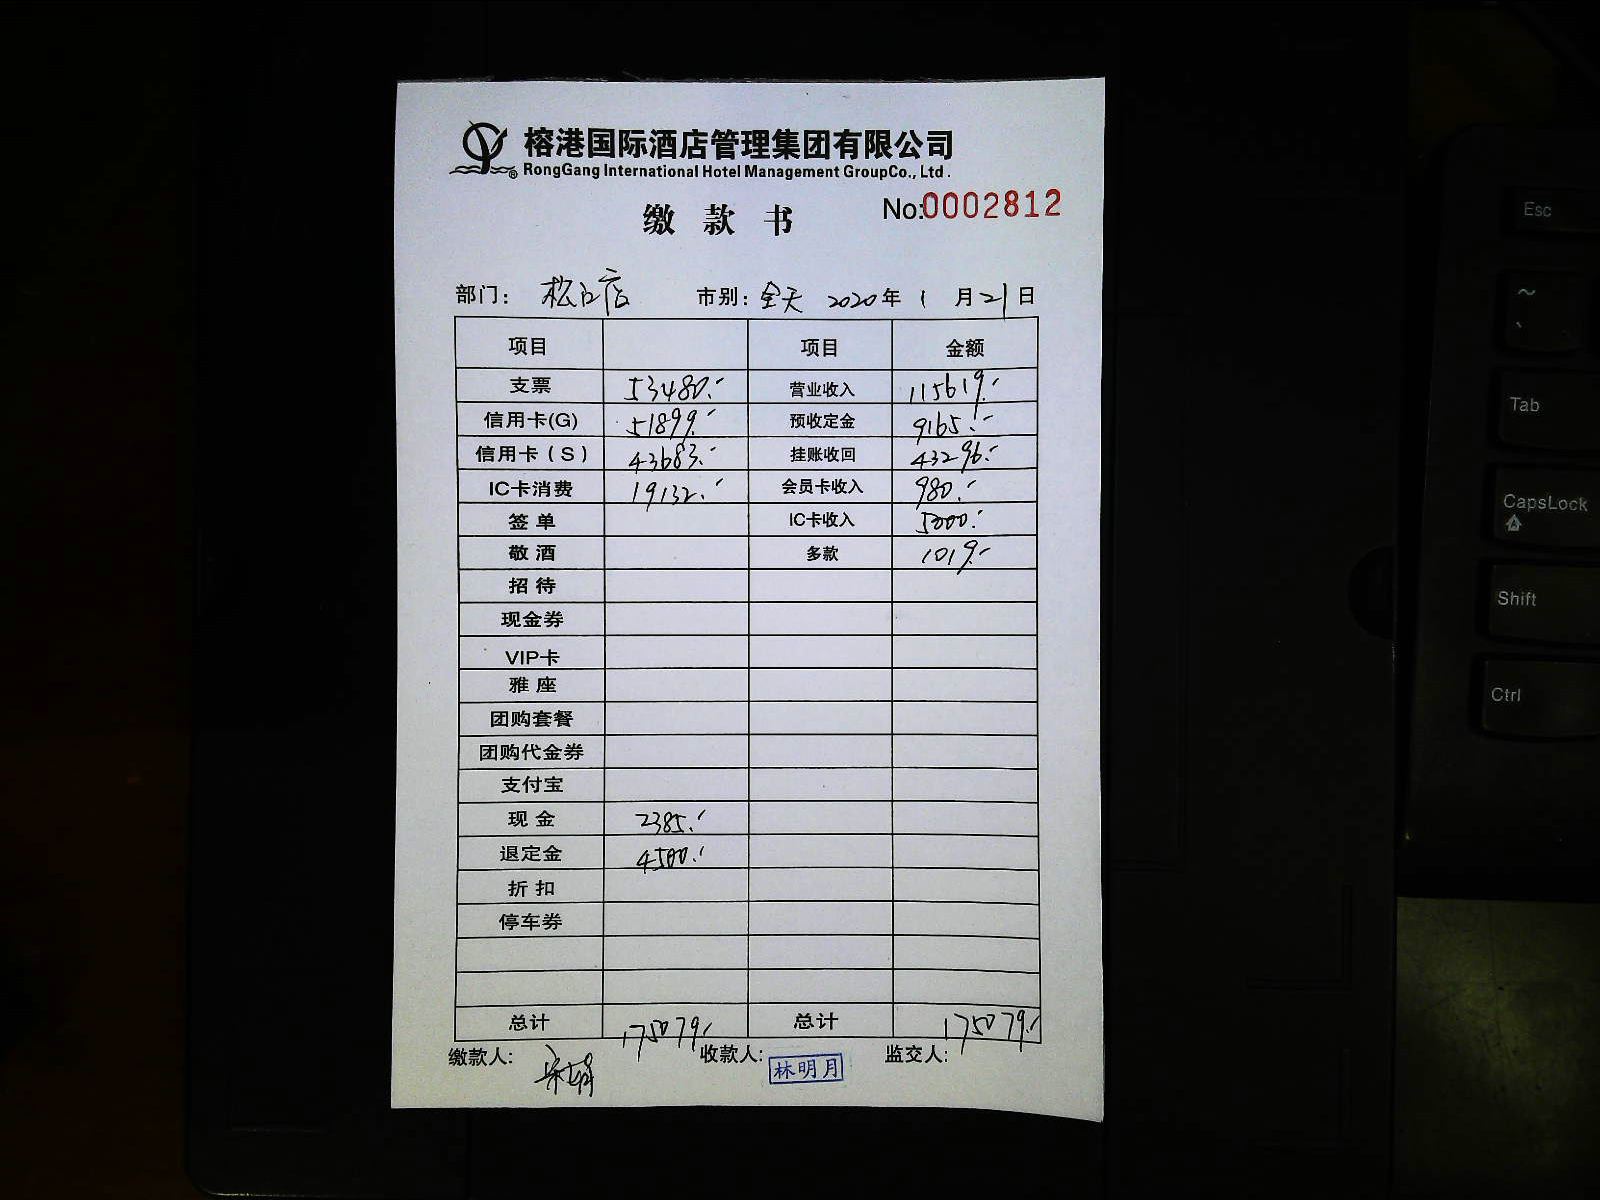 榕港国际酒店管理集团有限公司
RongGang International Hotel Management GroupCo., Ltd.
缴款书 No:0002812
部门: 松江店 市别: 全天 2020年 1 月 21 日
项目 项目 金额
支票 53480.- 营业收入 115619.-
信用卡(G) 51899.- 预收定金 9165.-
信用卡(S) 43683.- 挂账收回 43296.-
IC卡消费 19132.- 会员卡收入 980.-
签单 IC卡收入 5000.-
敬酒 多款 1019.-
招待
现金券
VIP卡
雅座
团购套餐
团购代金券
支付宝
现金 2385.-
退定金 4500.-
折扣
停车券
总计 175079.- 总计 175079.-
缴款人: 收款人: 林明月 监交人:
Esc
~
Tab
CapsLock
Shift
Ctrl